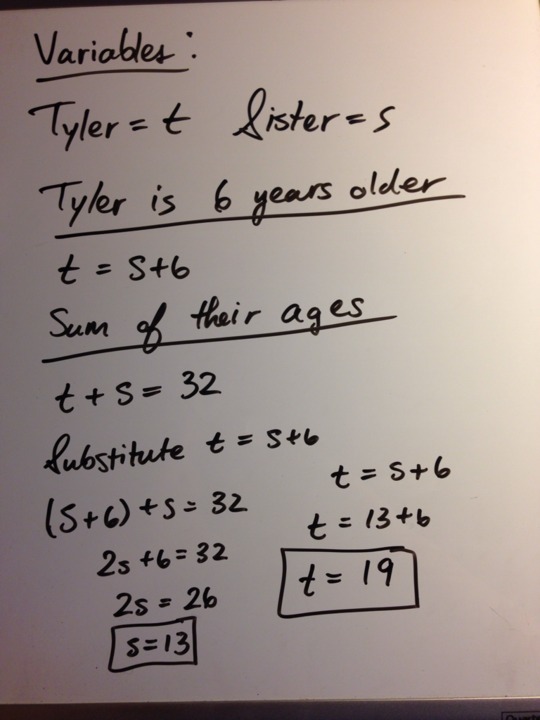 Variables:
Tyler = t Sister = s
Tyler is 6 years older
t = s+6
Sum of their ages
t + s = 32
Substitute t = s+6
(s+6) + s = 32
2s + 6 = 32
2s = 26
s=13
t = s+6
t = 13+6
t = 19